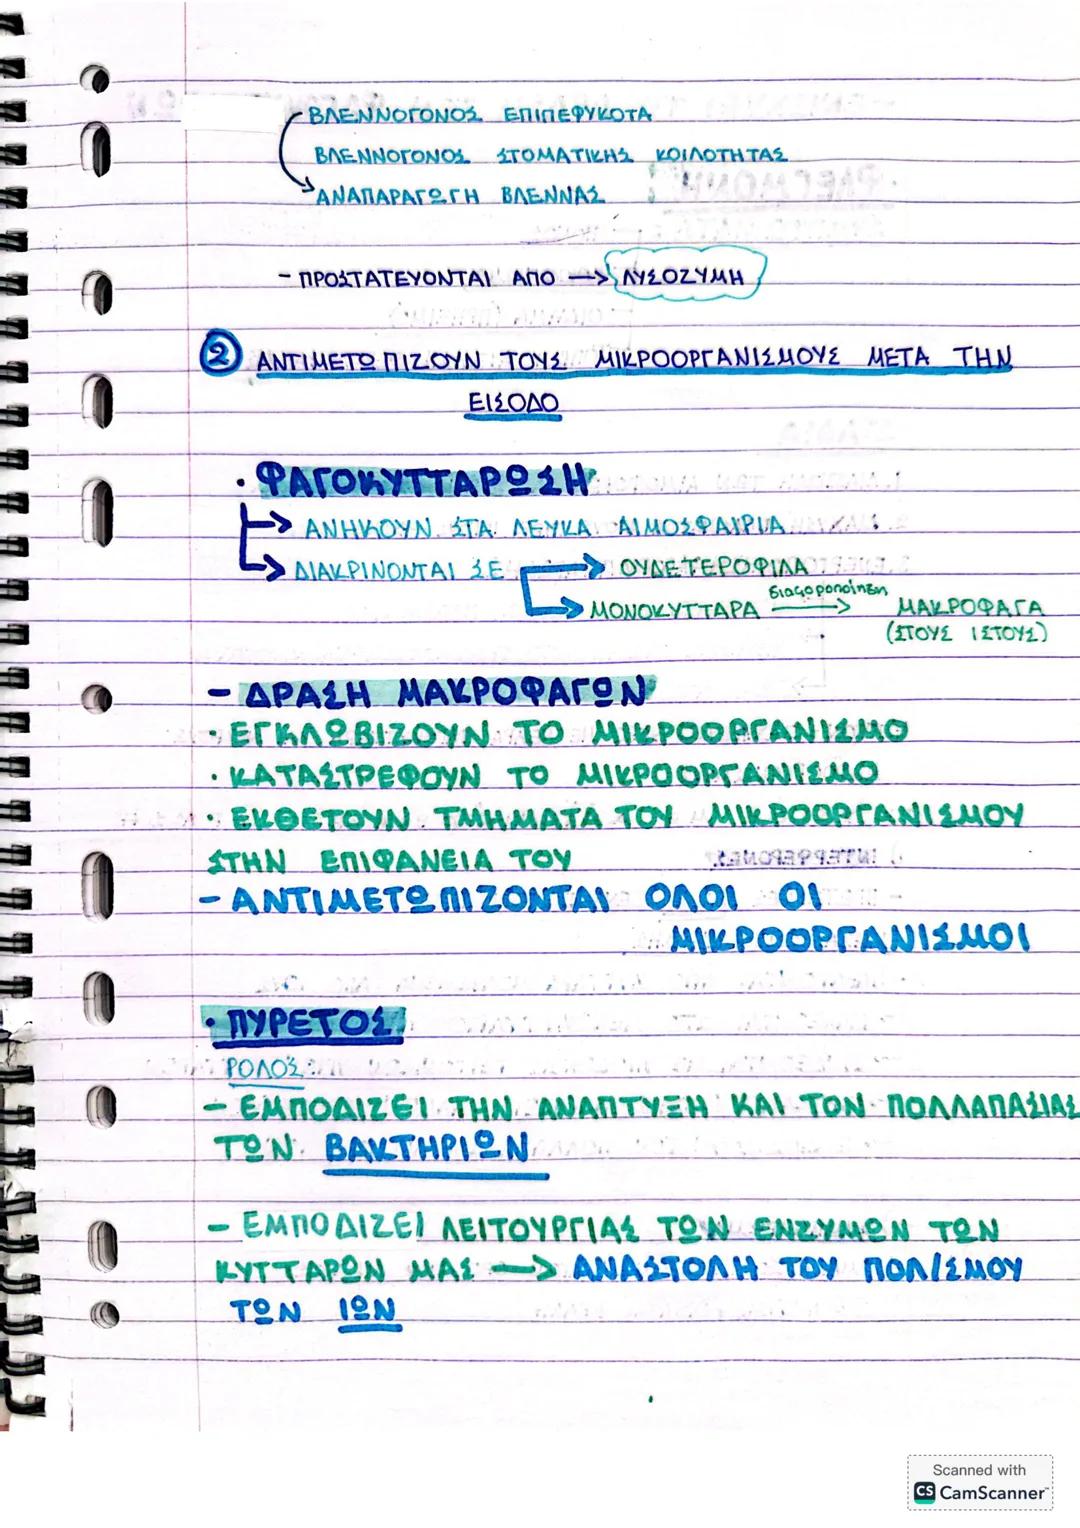 ΒΛΕΝΝΟΓΟΝΟΣ ΕΠΙΠΕΦΥΚΟΤΑ
ΒΛΕΝΝΟΓΟΝΟΣ ΣΤΟΜΑΤΙΚΗΣ ΚΟΙΛΟΤΗΤΑΣ
ΑΝΑΠΑΡΑΓΩΓΗ ΒΛΕΝΝΑΣ
- ΠΡΟΣΤΑΤΕΥΟΝΤΑΙ ΑΠΟ → ΛΥΣΟΖΥΜΗ
2 ΑΝΤΙΜΕΤΩΠΙΖΟΥΝ ΤΟΥΣ ΜΙΚΡΟΟΡΓΑΝΙΣΜΟΥΣ ΜΕΤΑ ΤΗΝ
ΕΙΣΟΔΟ
· ΦΑΓΟΚΥΤΤΑΡΩΣΗ
→ ΑΝΗΚΟΥΝ ΣΤΑ ΛΕΥΚΑ ΑΙΜΟΣΦΑΙΡΙΑ
→ ΔΙΑΚΡΙΝΟΝΤΑΙ ΣΕ → ΟΥΔΕΤΕΡΟΦΙΛΑ
→ ΜΟΝΟΚΥΤΤΑΡΑ διαφοροποίηση → ΜΑΚΡΟΦΑΓΑ
(ΣΤΟΥΣ ΙΣΤΟΥΣ)
- ΔΡΑΣΗ ΜΑΚΡΟΦΑΓΩΝ
· ΕΓΚΛΩΒΙΖΟΥΝ ΤΟ ΜΙΚΡΟΟΡΓΑΝΙΣΜΟ
· ΚΑΤΑΣΤΡΕΦΟΥΝ ΤΟ ΜΙΚΡΟΟΡΓΑΝΙΣΜΟ
· ΕΚΘΕΤΟΥΝ ΤΜΗΜΑΤΑ ΤΟΥ ΜΙΚΡΟΟΡΓΑΝΙΣΜΟΥ
ΣΤΗΝ ΕΠΙΦΑΝΕΙΑ ΤΟΥ
- ΑΝΤΙΜΕΤΩΠΙΖΟΝΤΑΙ ΟΛΟΙ ΟΙ
ΜΙΚΡΟΟΡΓΑΝΙΣΜΟΙ
· ΠΥΡΕΤΟΣ
ΡΟΛΟΣ:
- ΕΜΠΟΔΙΖΕΙ ΤΗΝ ΑΝΑΠΤΥΞΗ ΚΑΙ ΤΟΝ ΠΟΛΛΑΠΑΣΙΑΣ
ΤΩΝ ΒΑΚΤΗΡΙΩΝ
- ΕΜΠΟΔΙΖΕΙ ΛΕΙΤΟΥΡΓΙΑΣ ΤΩΝ ΕΝΖΥΜΩΝ ΤΩΝ
ΚΥΤΤΑΡΩΝ ΜΑΣ → ΑΝΑΣΤΟΛΗ ΤΟΥ ΠΟΛ/ΣΜΟΥ
ΤΩΝ ΙΩΝ
Scanned with
CS CamScanner